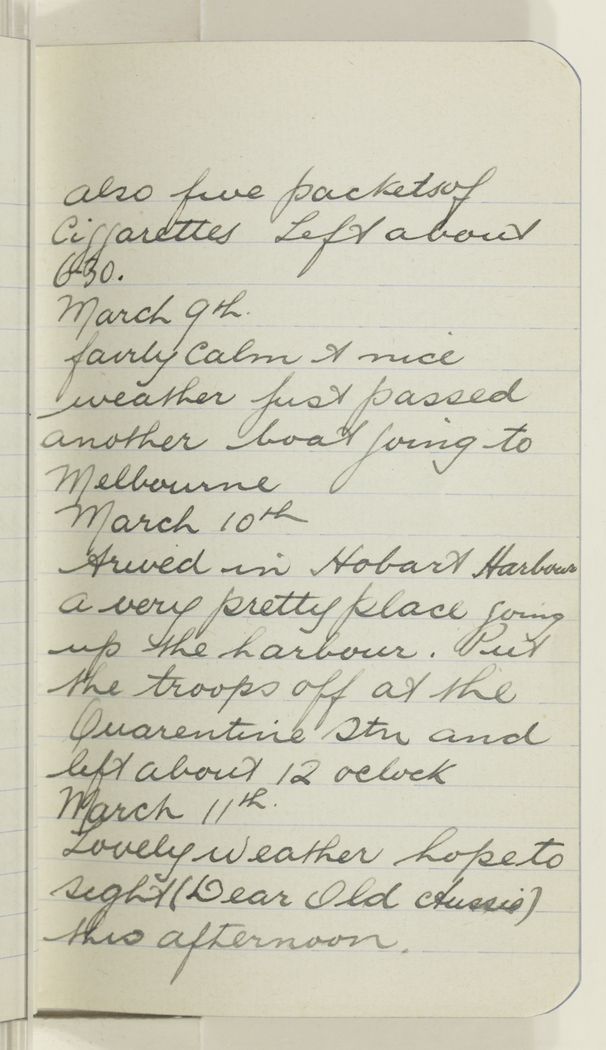 also five packets of
Ciggarettes Left about
6.30.
March 9th.
fairly Calm & nice
weather just passed
another boat going to
Melbourne
March 10th
Arived in Hobart Harbour
a very pretty place going
up the harbour. Put
the troops off at the
Quarentine Stn and
left about 12 oclock
March 11th.
Lovely weather hope to
sight (Dear Old Aussie)
this afternoon.